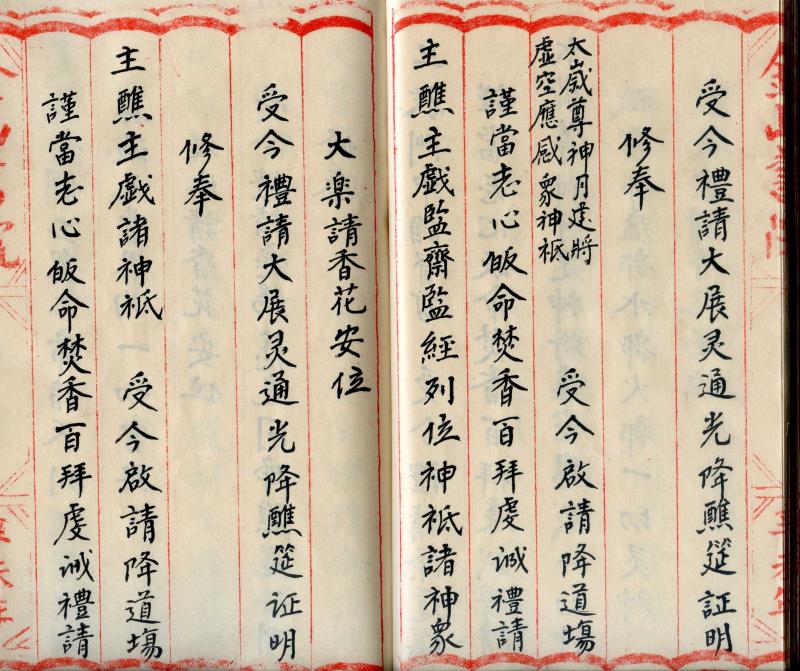 受今禮請大展灵通光降醮筵証明
修奉
太歲尊神月建將
虛空應感衆神祇
受今啟請降道場
謹當志心皈命焚香百拜虔诚禮請
主醮主戲監齋監經列位神祇諸神衆
大楽請香花安位
受今禮請大展灵通光降醮筵证明
修奉
主醮主戲諸神祇 受今啟請降道塲
謹當志心皈命焚香百拜虔诚禮請